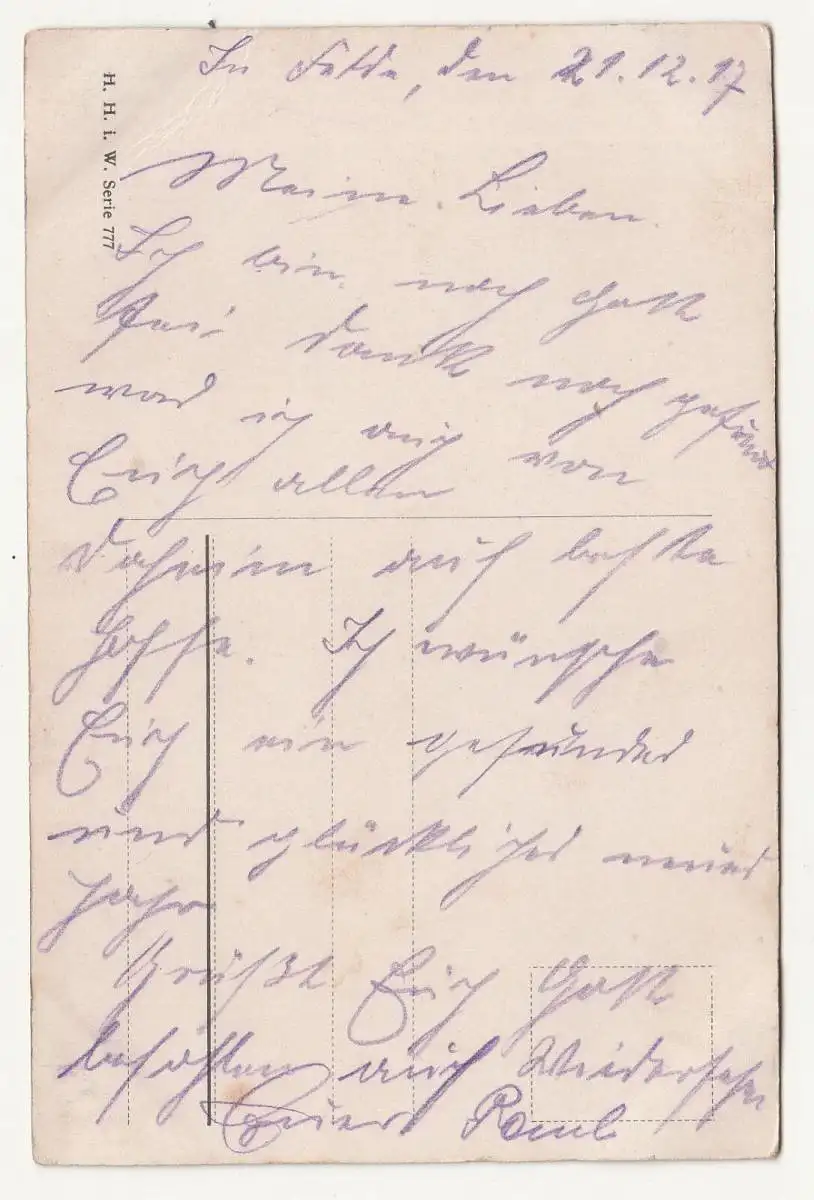 In Felde, den 21.12.17
H. H. i. W. Serie 777
Meine Lieben.
Ich bin noch Gott
sei Dank noch gesund
was ich auch von
Euch allen
daheim auf beste
hoffe. Ich wünsche
Euch ein gesundes
und glückliches neues
Jahr
Grüßt Euch Gott
befohlen auf Wiedersehn
Euer Paul